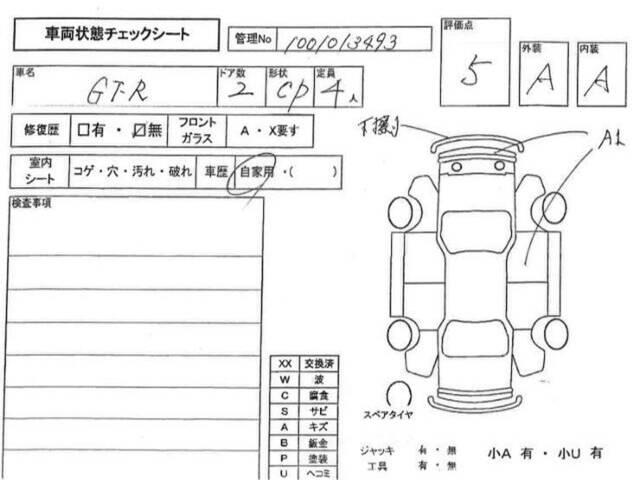 車両状態チェックシート
管理No 1001013493
評価点 5
外装 A
内装 A
車名 GT-R
ドア数 2
形状 CP
定員 4人
修復歴 □有・☑無
フロントガラス A・X要す
室内シート コゲ・穴・汚れ・破れ
車歴 自家用・( )
検査事項
下擦り
A1
XX 交換済
W 波
C 腐食
S サビ
A キズ
B 鈑金
P 塗装
U ヘコミ
スペアタイヤ
ジャッキ 有・無
工具 有・無
小A 有・小U 有